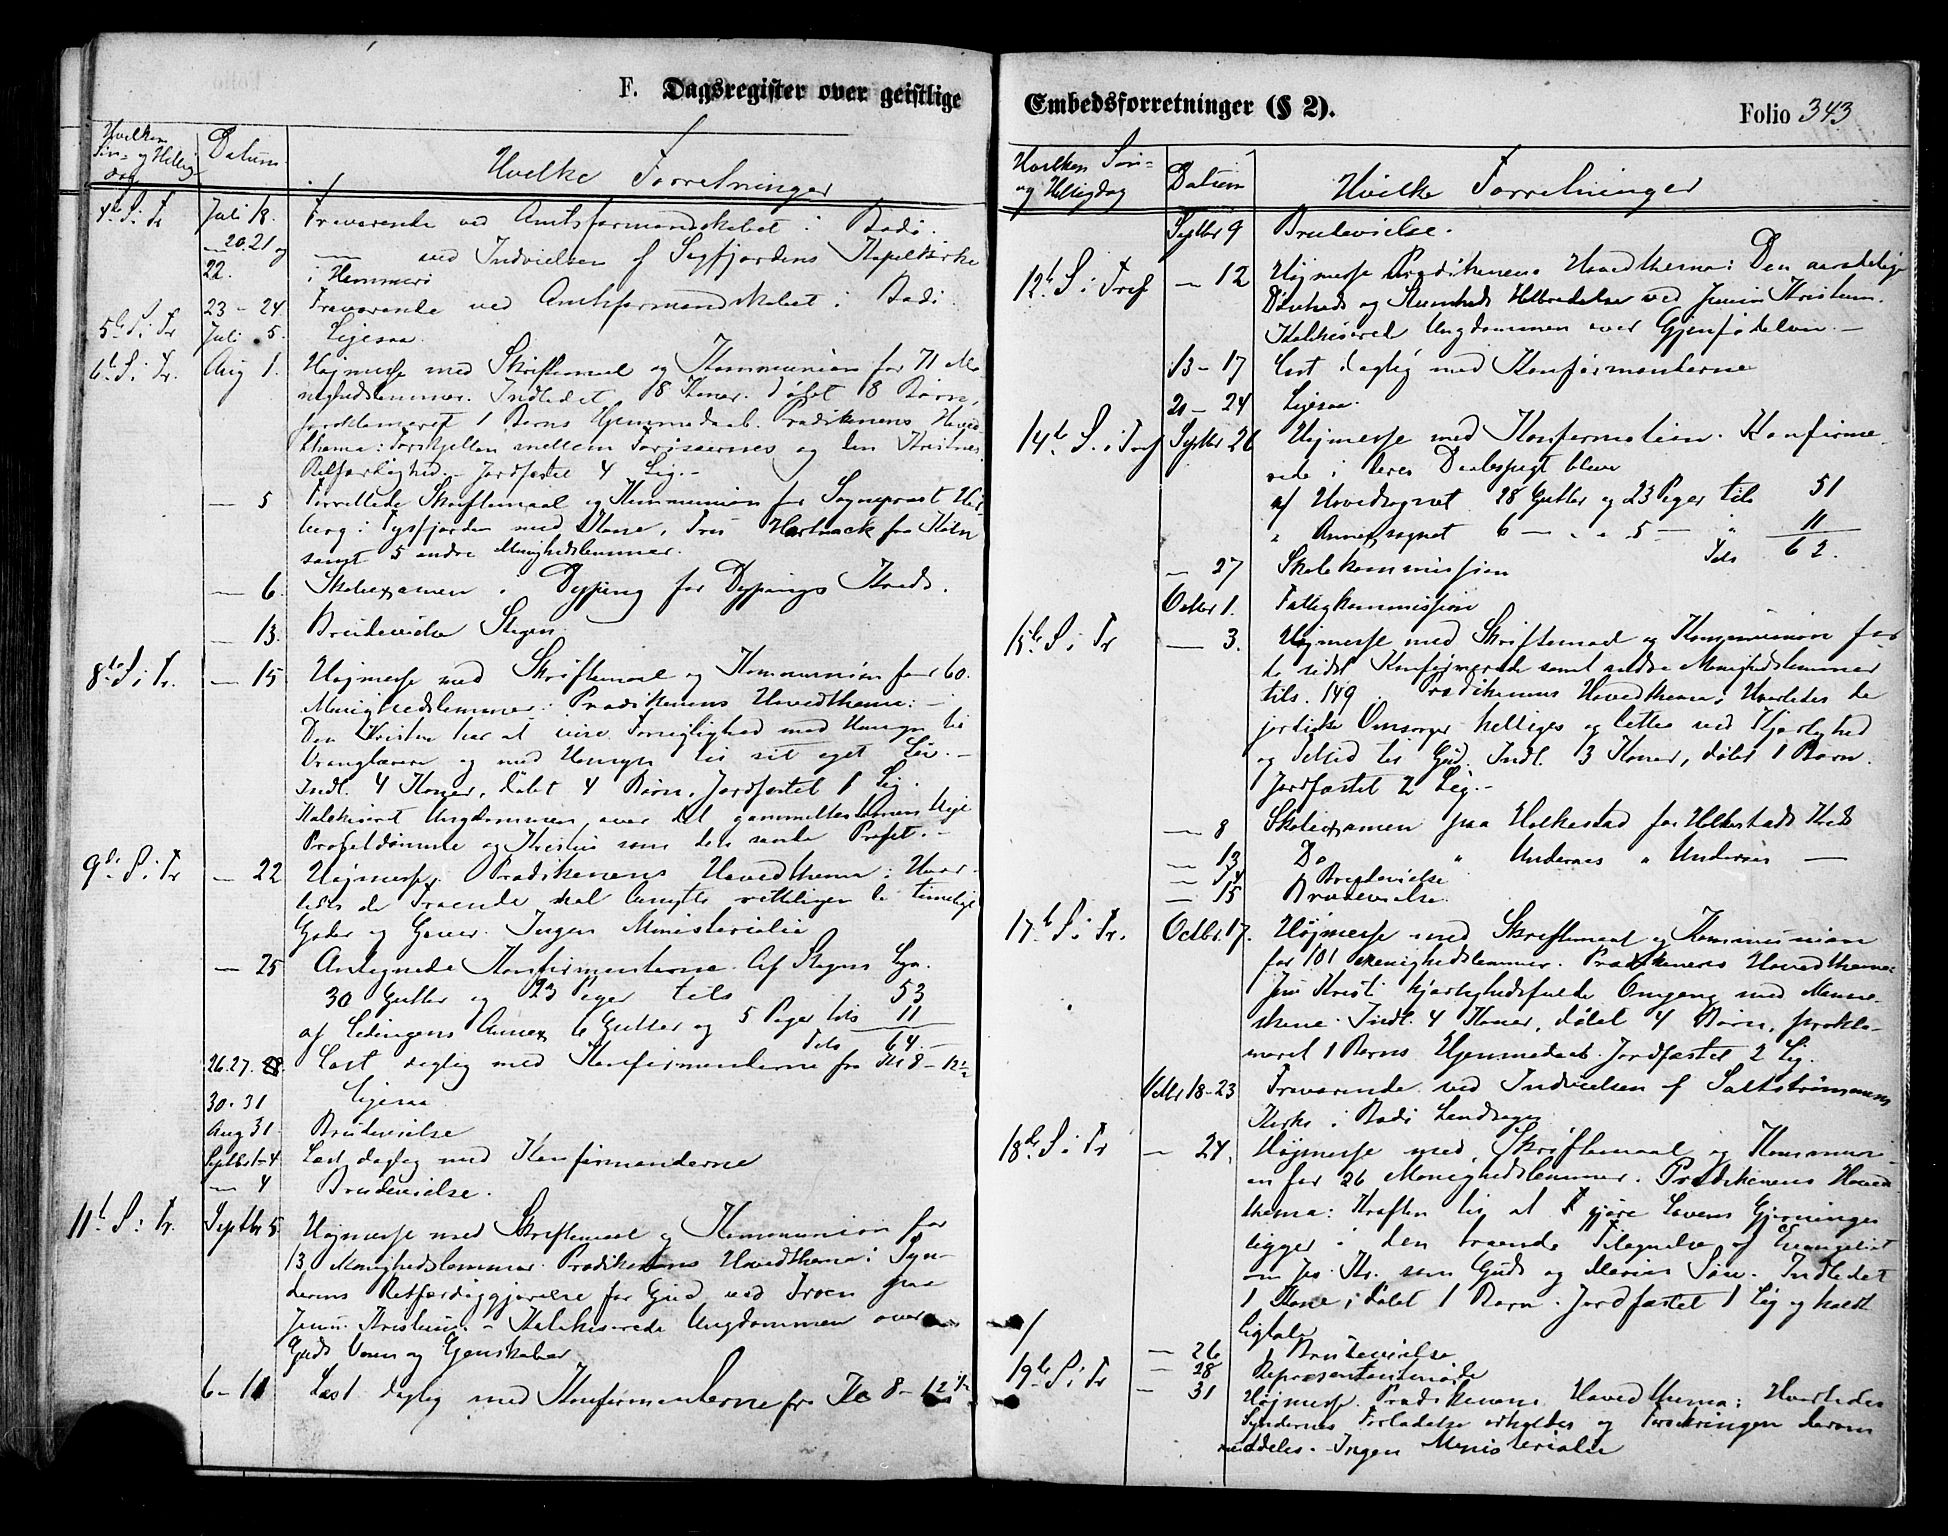 F. Dagsregister over geistlige
Hvilken Søn- og Hellig dag
Datum
Hvilke Forretninger
4de S. i Tr Juli 18. Fraværende ved Amtsformandskabet i Bodø.
— 20. 21 og — ved Indvielsen af Sagfjordens Kapelkirke
22. i Hammerø
23 – 24 Fraværende ved Amtsformandskabet i Bodø.
5te S. i Tr Juli 5. Ligesaa.
6te S. i Tr. Aug 1. Højmesse med Skriftemaal og Kommunion for 71 Me-
nighedslemmer. Indledet 18 Koner. døbt 18 Børn,
proklameret 1 Barns Hjemmedaab. Prædikenens Hoved-
thema: Forskjellen mellem Farisæernes og den Kristnes
Retfærdighed. – Jordfæstet 4 Lig. –
— 5 Forrettede Skriftemaal og Kommunion for Sogneprest
berg i Tysfjorden med Kone, Fru Hartnack fra
samt 5 andre Menighedslemmer.
— 6. Skoleexamen i Dyping for Dypings Kreds.
— 13. Brudevielse Stegen.
8de S. i Tr. — 15 Højmesse med Skriftemaal og Kommunion for 60.
Menighedslemmer. Prædikenens Hovedthema: –
Den Kristen har at vise Forsigtighed med Hensyn til
Vranglærere og med Hensyn til sit eget Liv. –
Indl. 4 Koner, døbt 4 Børn, Jordfæstet 1 Lig.
Katekiseret Ungdommen over det gammeltestamentlige
Profetdømme og Kristus som den sande Profet. –
9de S. i Tr — 22 Højmesse. Prædikenens Hovedthema: Hvor-
ledes de Troende skal benytte retteligen de timelige
Goder og Gaver. Ingen Ministerialia
— 25 Antegnede Konfirmanterne. Af Stegens Sgn.
30 Gutter og 23 Piger tils 53
af Lødingens Annex 6 Gutter og 5 Piger tils 11
Tils 64. –
26. 27. 28 Læst daglig med Konfirmanderne fra Kl 8 – 12½
30. 31 Ligesaa
Aug 31. Brudevielse
Septbr 1–4 Læst daglig med Konfirmanderne
— 4 Brudevielse.
11te S. i Tr. Septbr 5 Højmesse med Skriftemaal og Kommunion for
13 Menighedslemmer. Prædikenens Hovedthema: Syn-
derens Retfærdiggjørelse for Gud ved Troen paa
Jesum Kristum. – Katekiserede Ungdommen over
Guds Væsen og Egenskaber
6 – 11 Læst daglig med Konfirmanterne fra Kl 8 – 12½
Embedsforretninger (§ 2).
Folio 343
Hvilken Søn- og Helligdag
Datum
Hvilke Forretninger
Septbr 9 Brudevielse.
12te S. i Tref — 12 Højmesse Prædikenens Hovedthema: Den aandelige
Døvheds og Stumheds Helbredelse ved Jesum Kristum.
Katekiseret Ungdommen over Gjenfødelsen. –
13 – 17 Læst daglig med Konfirmanterne
20 – 24 Ligesaa.
14te S. i Tref Septbr 26 Højmesse med Konfirmation. Konfirme-
rede i deres Daabspagt bleve
af Hovedsognet 28 Gutter og 23 Piger tils 51
" Annexsognet 6 — " " 5 — " 11
Tils 62.
— 27 Skolekommission
Octbr 1. Fattigkommission
15de S. i Tr — 3. Højmesse med Skriftemaal og Kommunion for
de sidst Konfirmerede samt andre Menighedslemmer
tils. 149. Prædikenens Hovedthema: Hvorledes de
jordiske Omsorger helliges og lettes ved Kjærlighed
og Tillid til Gud. Indl. 3 Koner, døbt 1 Barn.
Jordfæstet 2 Lig. –
— 8 Skoleexamen paa Holkestad for Holkestads Kreds
— 13 Do " Undernes " Undernes —
— 14 Brudevielse
— 15 Brudevielse.
17de S. i Tr. Octbr. 17. Højmesse med Skriftemaal og Kommunion
for 101 Menighedslemmer. Prædikenens Hovedthema:
Jesu Kristi kjærlighedsfulde Omgang med Menne-
skene. Indl. 4 Koner, døbt 4 Børn, prokla-
meret 1 Barns Hjemmedaab. Jordfæstet 2 Lig.
Octbr 18–23 Fraværende ved Indvielsen af Saltstrømmens
Kirke i Bodø Landsogn
18de S. i Tr — 24. Højmesse med Skriftemaal og Kommuni-
on for 26 Menighedslemmer. Prædikenens Hoved
thema: Kraften til at gjøre Lovens Gjerninger
ligger i den troende Tilegnelse af Evangeliet
om Jes. Kr. som Guds og Marias Søn. Indledet
1 Kone, døbt 1 Barn. Jordfæstet 1 Lig og holdt
Ligtale
— 26 Brudevielse
— 28 Repræsentantmøde
19de S. i Tr — 31 Højmesse. Prædikenens Hovedthema: Hvorledes
Syndernes Forladelse erholdes og Forsikringen derom
meddeles. – Ingen Ministerialia